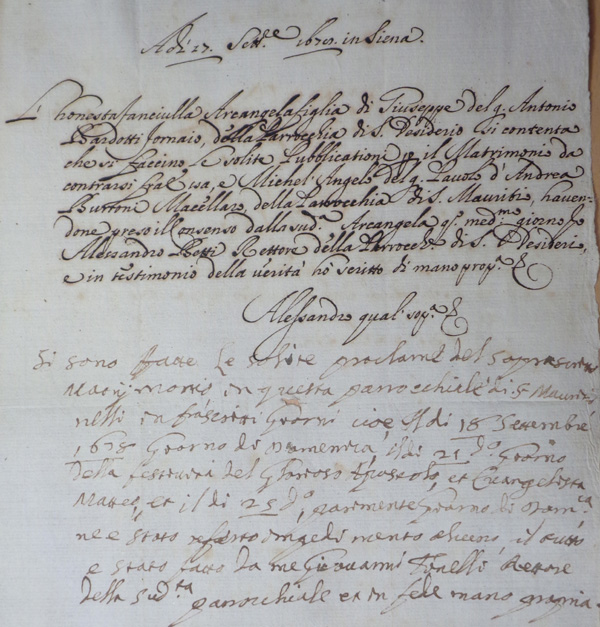 Adi 17. Sett.e 1678. in Siena.
L'honesta fanciulla Arcangela figlia di Giuseppe del q. Antonio
Bardotti fornaio, della Parrocchia di S. Desiderio si contenta
che si faccino le solite Pubblicationi p il Matrimonio da
contrarsi fra essa, e Michel' Angelo del q. Pavolo d'Andrea
Burroni Macellaro, della Parrocchia di S. Mauritio, haven-
done preso il consenso dalla sud.a Arcangela q.o med.mo giorno Jo
Alessandro Rettore della Parrocch.a di S. Desiderio,
e in testimonio della verità hò scritto di mano prop.a
Alessandro qual sop.a
Si sono fatte le solite proclame del soprascritto
Matrimonio in questa parrocchiale di S. Mauri
nelli infrascritti Giorni cioe il di 18 Settembre
1678 Giorno di Domenica, il di 21 d.o Giorno
della festività del Glorioso Apostolo, et Evangelista
Matteo, et il di 25 d.o, parimente Giorno di Dom.ca
ne è stato referto impedimento alcuno, il tutto
è stato fatto da me Giovanni Rettore
della sud.ta parrocchiale et in fede mano propria.